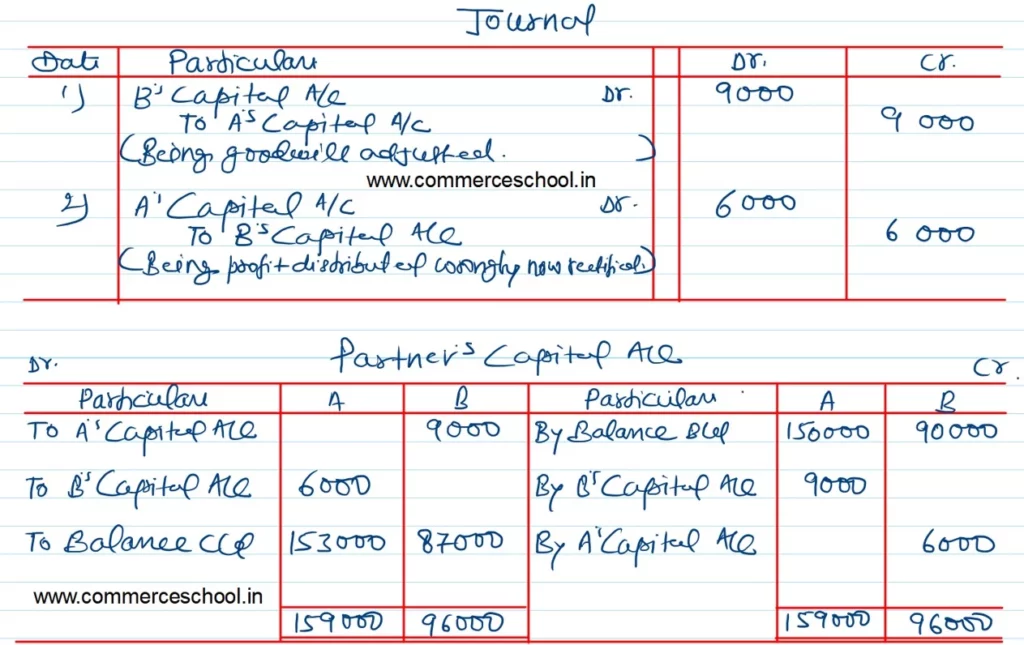 Journal
Date Particulars Dr. Cr.
1) B's Capital A/c Dr. 9000
To A's Capital A/c 9 000
(Being goodwill adjusted. )
www.commerceschool.in
2) A' Capital A/c Dr. 6000
To B's Capital A/c 6 000
(Being profit distributed wrongly now rectified.)
Dr. Partner's Capital A/c Cr.
Particulars A B Particulars A B
To A's Capital A/c 9000 By Balance B/d 150000 90000
To B's Capital A/c 6000 By B's Capital A/c 9000
To Balance C/d 153000 87000 By A' Capital A/c 6000
www.commerceschool.in
159000 96000 159000 96000